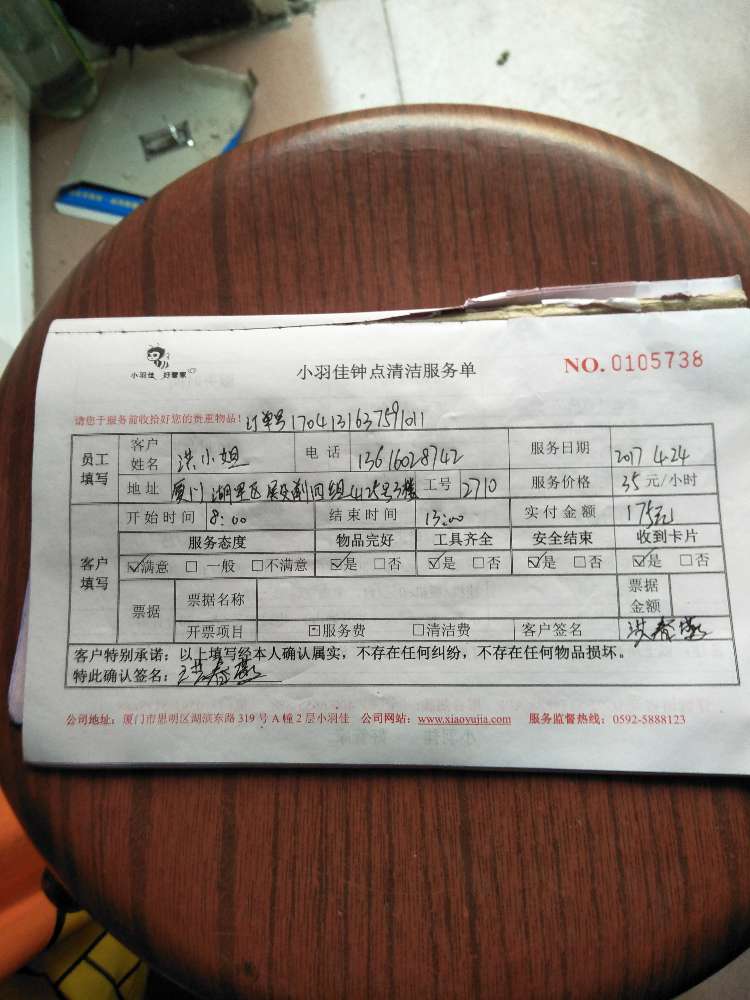 小羽佳 好管家
小羽佳钟点清洁服务单
NO. 0105738
请您于服务前收拾好您的贵重物品! 订单号17041316375911011
员工填写 客户姓名 洪小姐 电话 13616028742 服务日期 2017 4.24
地址 厦门 湖里区 四组 425号3楼 工号 2710 服务价格 35 元/小时
客户填写 开始时间 8:00 结束时间 13:00 实付金额 175元
服务态度 物品完好 工具齐全 安全结束 收到卡片
☑满意 □一般 □不满意 ☑是 □否 ☑是 □否 ☑是 □否 ☑是 □否
票据 票据名称 票据金额
开票项目 □服务费 □清洁费 客户签名 洪春燕
客户特别承诺：以上填写经本人确认属实，不存在任何纠纷，不存在任何物品损坏。
特此确认签名：洪春燕
公司地址：厦门市思明区湖滨东路 319 号 A 幢 2 层小羽佳 公司网站：www.xiaoyujia.com 服务监督热线：0592-5888123